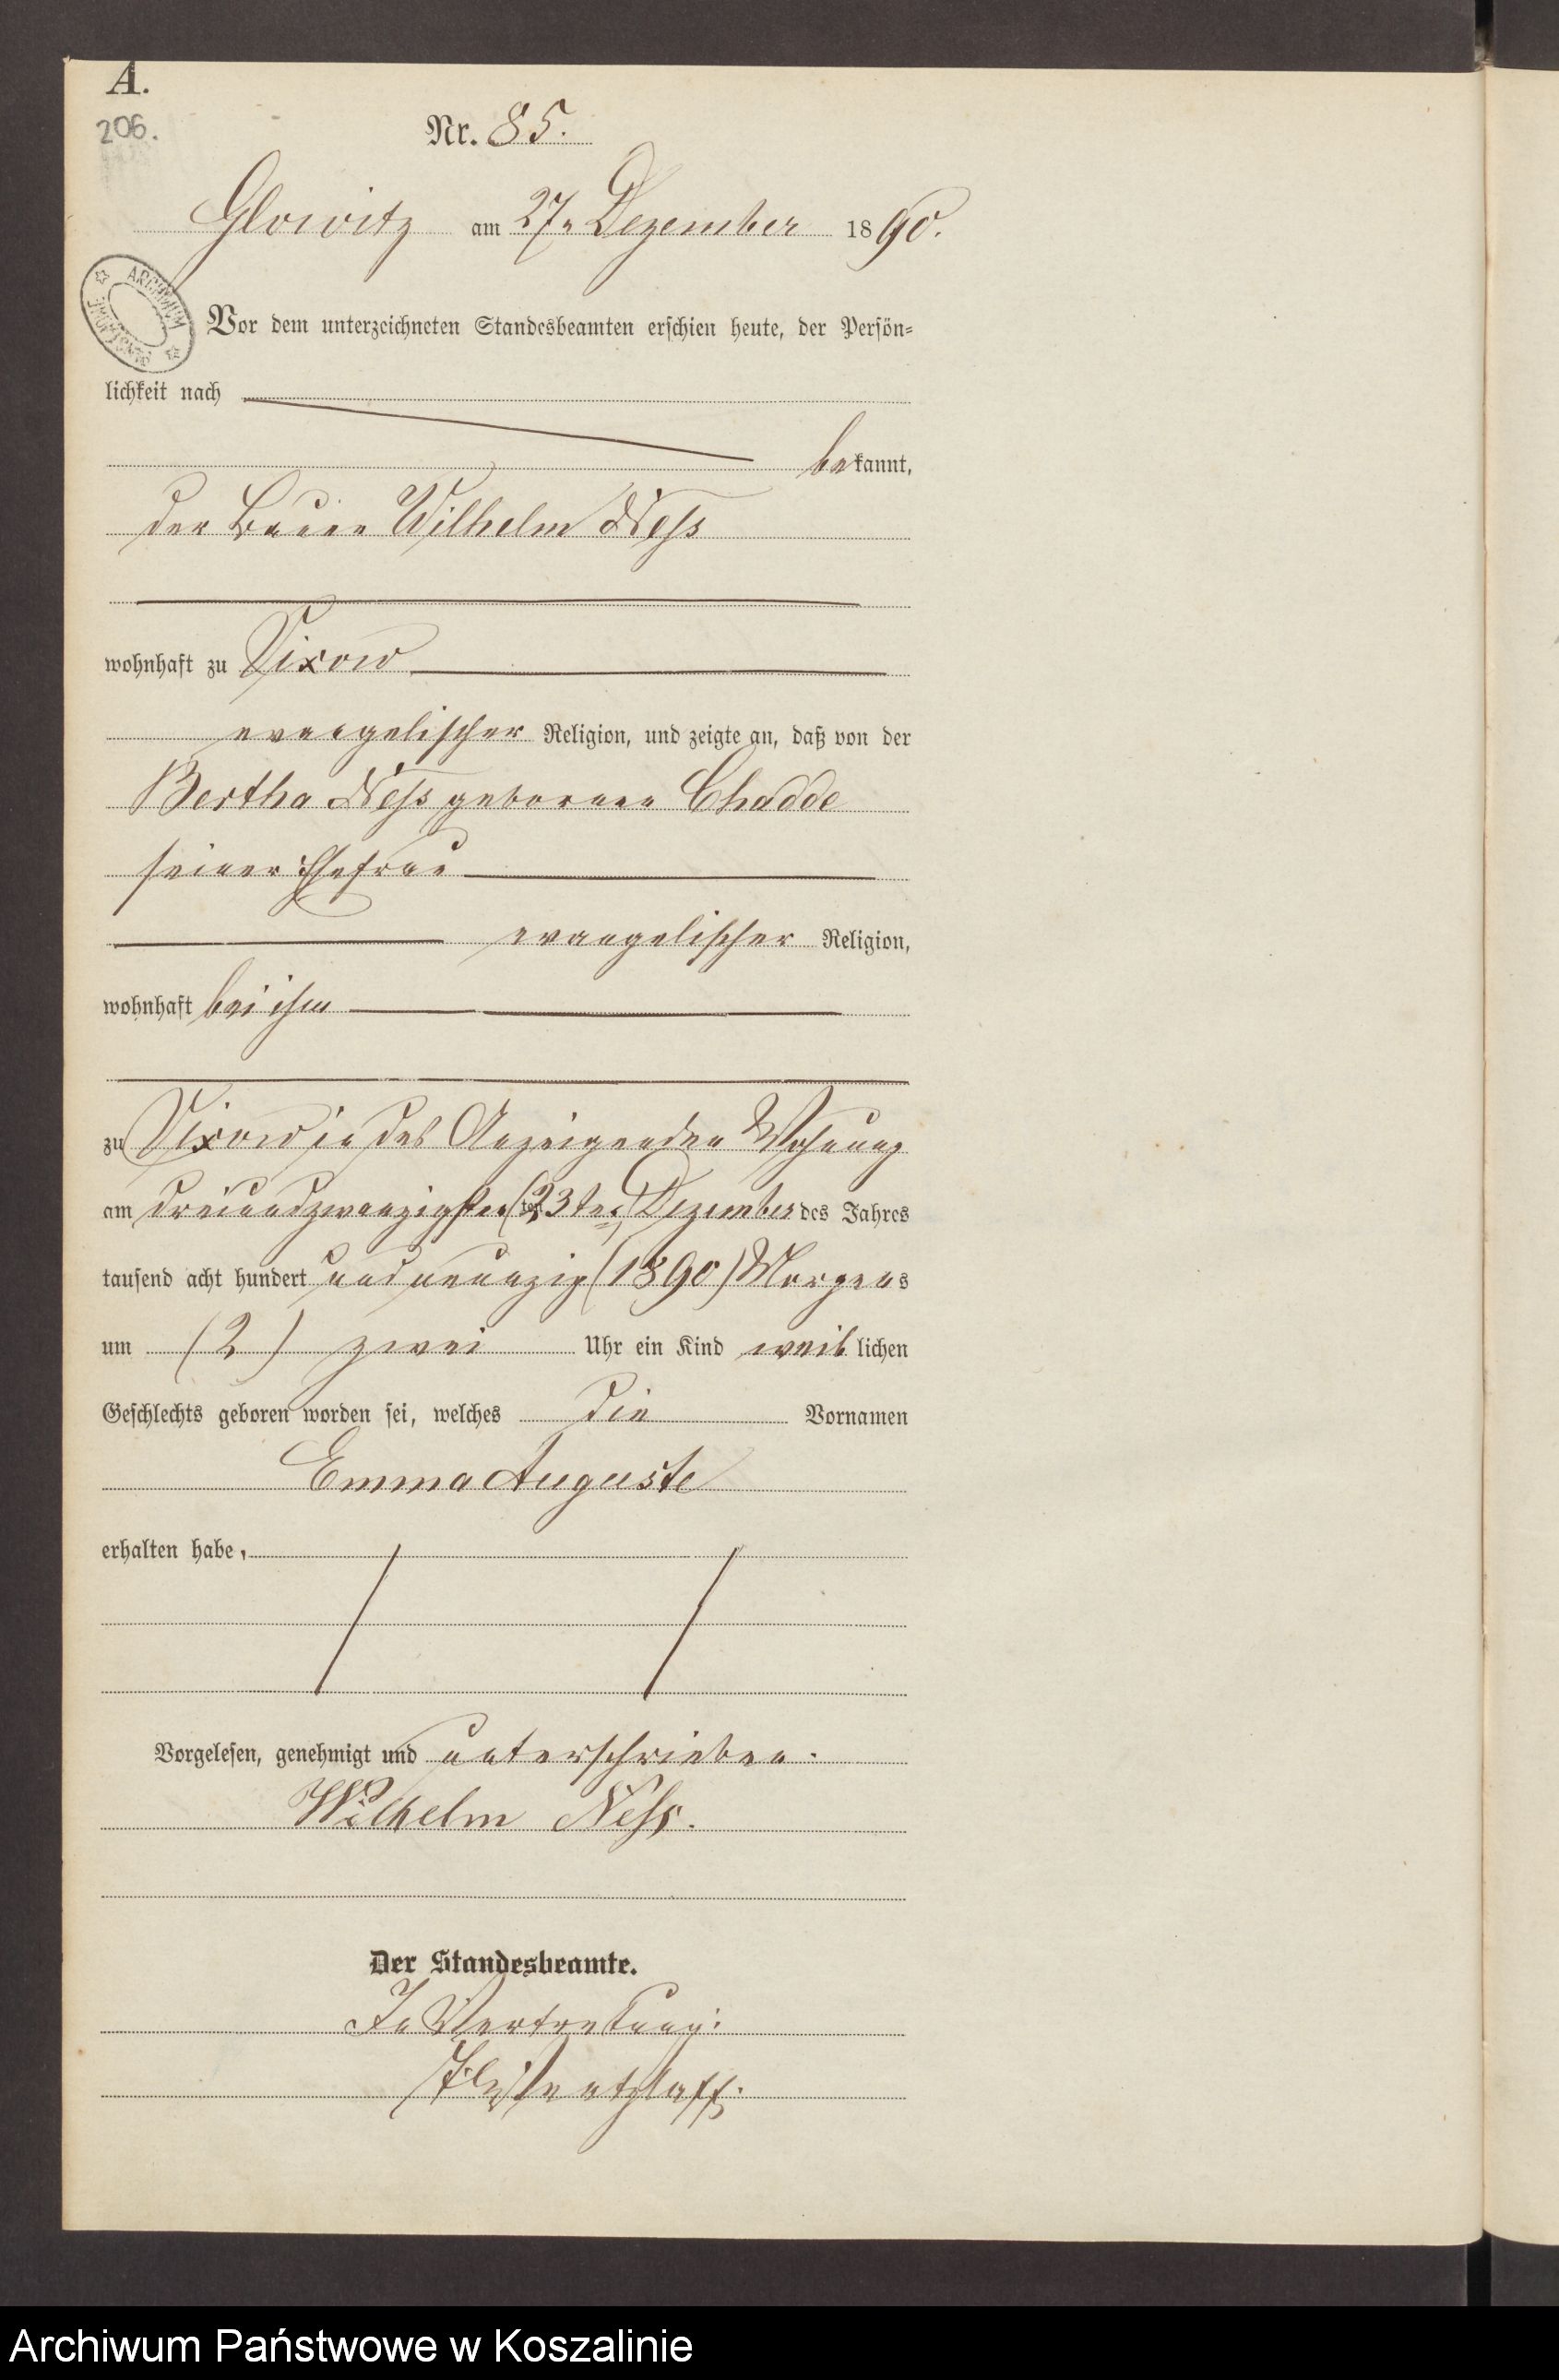 A.
206.
Nr. 85.
Glowitz am 27n Dezember 1890.
ARCHIWUM PAŃSTWOWE
Vor dem unterzeichneten Standesbeamten erschien heute, der Persön=
lichkeit nach
bekannt,
der Bauer Wilhelm Ness
wohnhaft zu Vixow
evangelischer Religion, und zeigte an, daß von der
Bertha Ness geborenen Chadde
seiner Ehefrau
evangelischer Religion,
wohnhaft bei ihm
zu Vixow in des Anzeigenden Wohnung
am dreiundzwanzigsten (23ten) Dezember des Jahres
tausend acht hundert und neunzig (1890) Morgens
um (2) zwei Uhr ein Kind weiblichen
Geschlechts geboren worden sei, welches die Vornamen
Emma Auguste
erhalten habe.
Vorgelesen, genehmigt und unterschrieben.
Wilhelm Ness.
Der Standesbeamte.
In Vertretung:
Archiwum Państwowe w Koszalinie